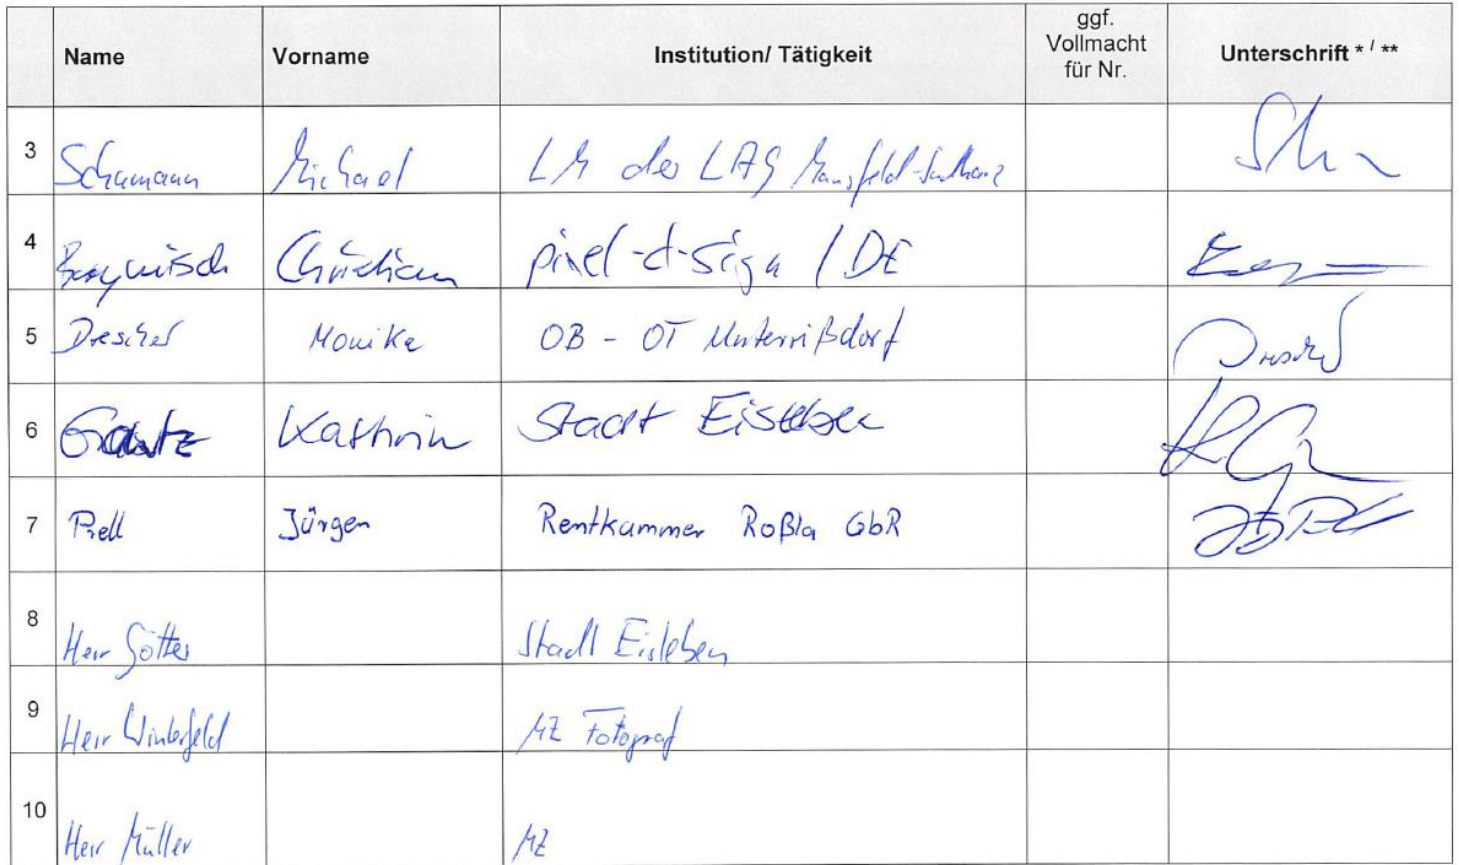 Name Vorname Institution/ Tätigkeit ggf. Vollmacht für Nr. Unterschrift * / **
3 Schumann Michael LM der LAG Mansfeld-Südharz
4 Christian pixel-d-sign / DE
5 Drescher Monika OB - OT Unterrißdorf
6 Gantz Kathrin Stadt Eisleben
7 Prell Jürgen Rentkammer Roßla GbR
8 Herr Götter Stadt Eisleben
9 Herr Winterfeld MZ Fotograf
10 Herr Müller MZ